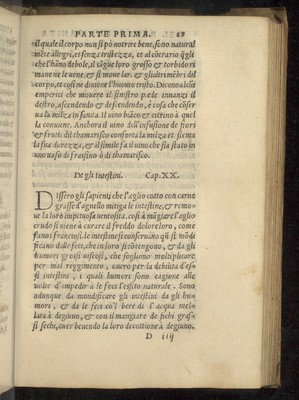 PARTE PRIMA. 28
il quale il corpo non si pò notrire bene, sono natural
mẽte allegri, et senza tristezza, et al cõtrario q̃lli
che l'hãno debole, il sãgue loro grosso & torbido ri
mane ne le uene, & si moue lar. & gli altri mẽbri del
corpo, et cosi ne diuiene l'huomo tristo. Dicono alcũi
emperici che mouere il sinistro pede innanzi il
destro, ascendendo & descendendo, è cosa che cõser
ua la milza in sanita. Il uino biãco & cittino à quel
la conuene. Anchora il uino dell'infusione de fiori
& frutti del thamarisco conforta la milza et siema
la sua durezza, & il simile fa il uino che sia stato in
uno uaso di frassino ò di thamarisco.
De gli Intestini. Cap. XX.
DIssero gli sapienti che l'aglio cotto con carne
grassa d'agnello mitiga le intestine, & remo
ue la loro impetuosa uentosita. cosi à mãgiare l'aglio
crudo si uiene à curare il freddo dolore loro, come
fano i francesi. le intestine si cõseruano q̃n si mõdi
ficano dalle feci, che in loro si cõtengono, & da gli
humori grossi uiscosi, che sogliono multiplicare
per mal reggimento, ouero per la debilita d'es
si intestini, i quali humori sono cagione alle
uolte d'impedir à le feci l'essito naturale. Sono
adunque da mondificare gli intestini da gli hu
mori, & da le feci cõ'l bere di l'acqua mela
lata à degiuno, & con il mangiare de fichi gras
si sechi, ouer beuendo la loro decottione à degiuno.
D iiij